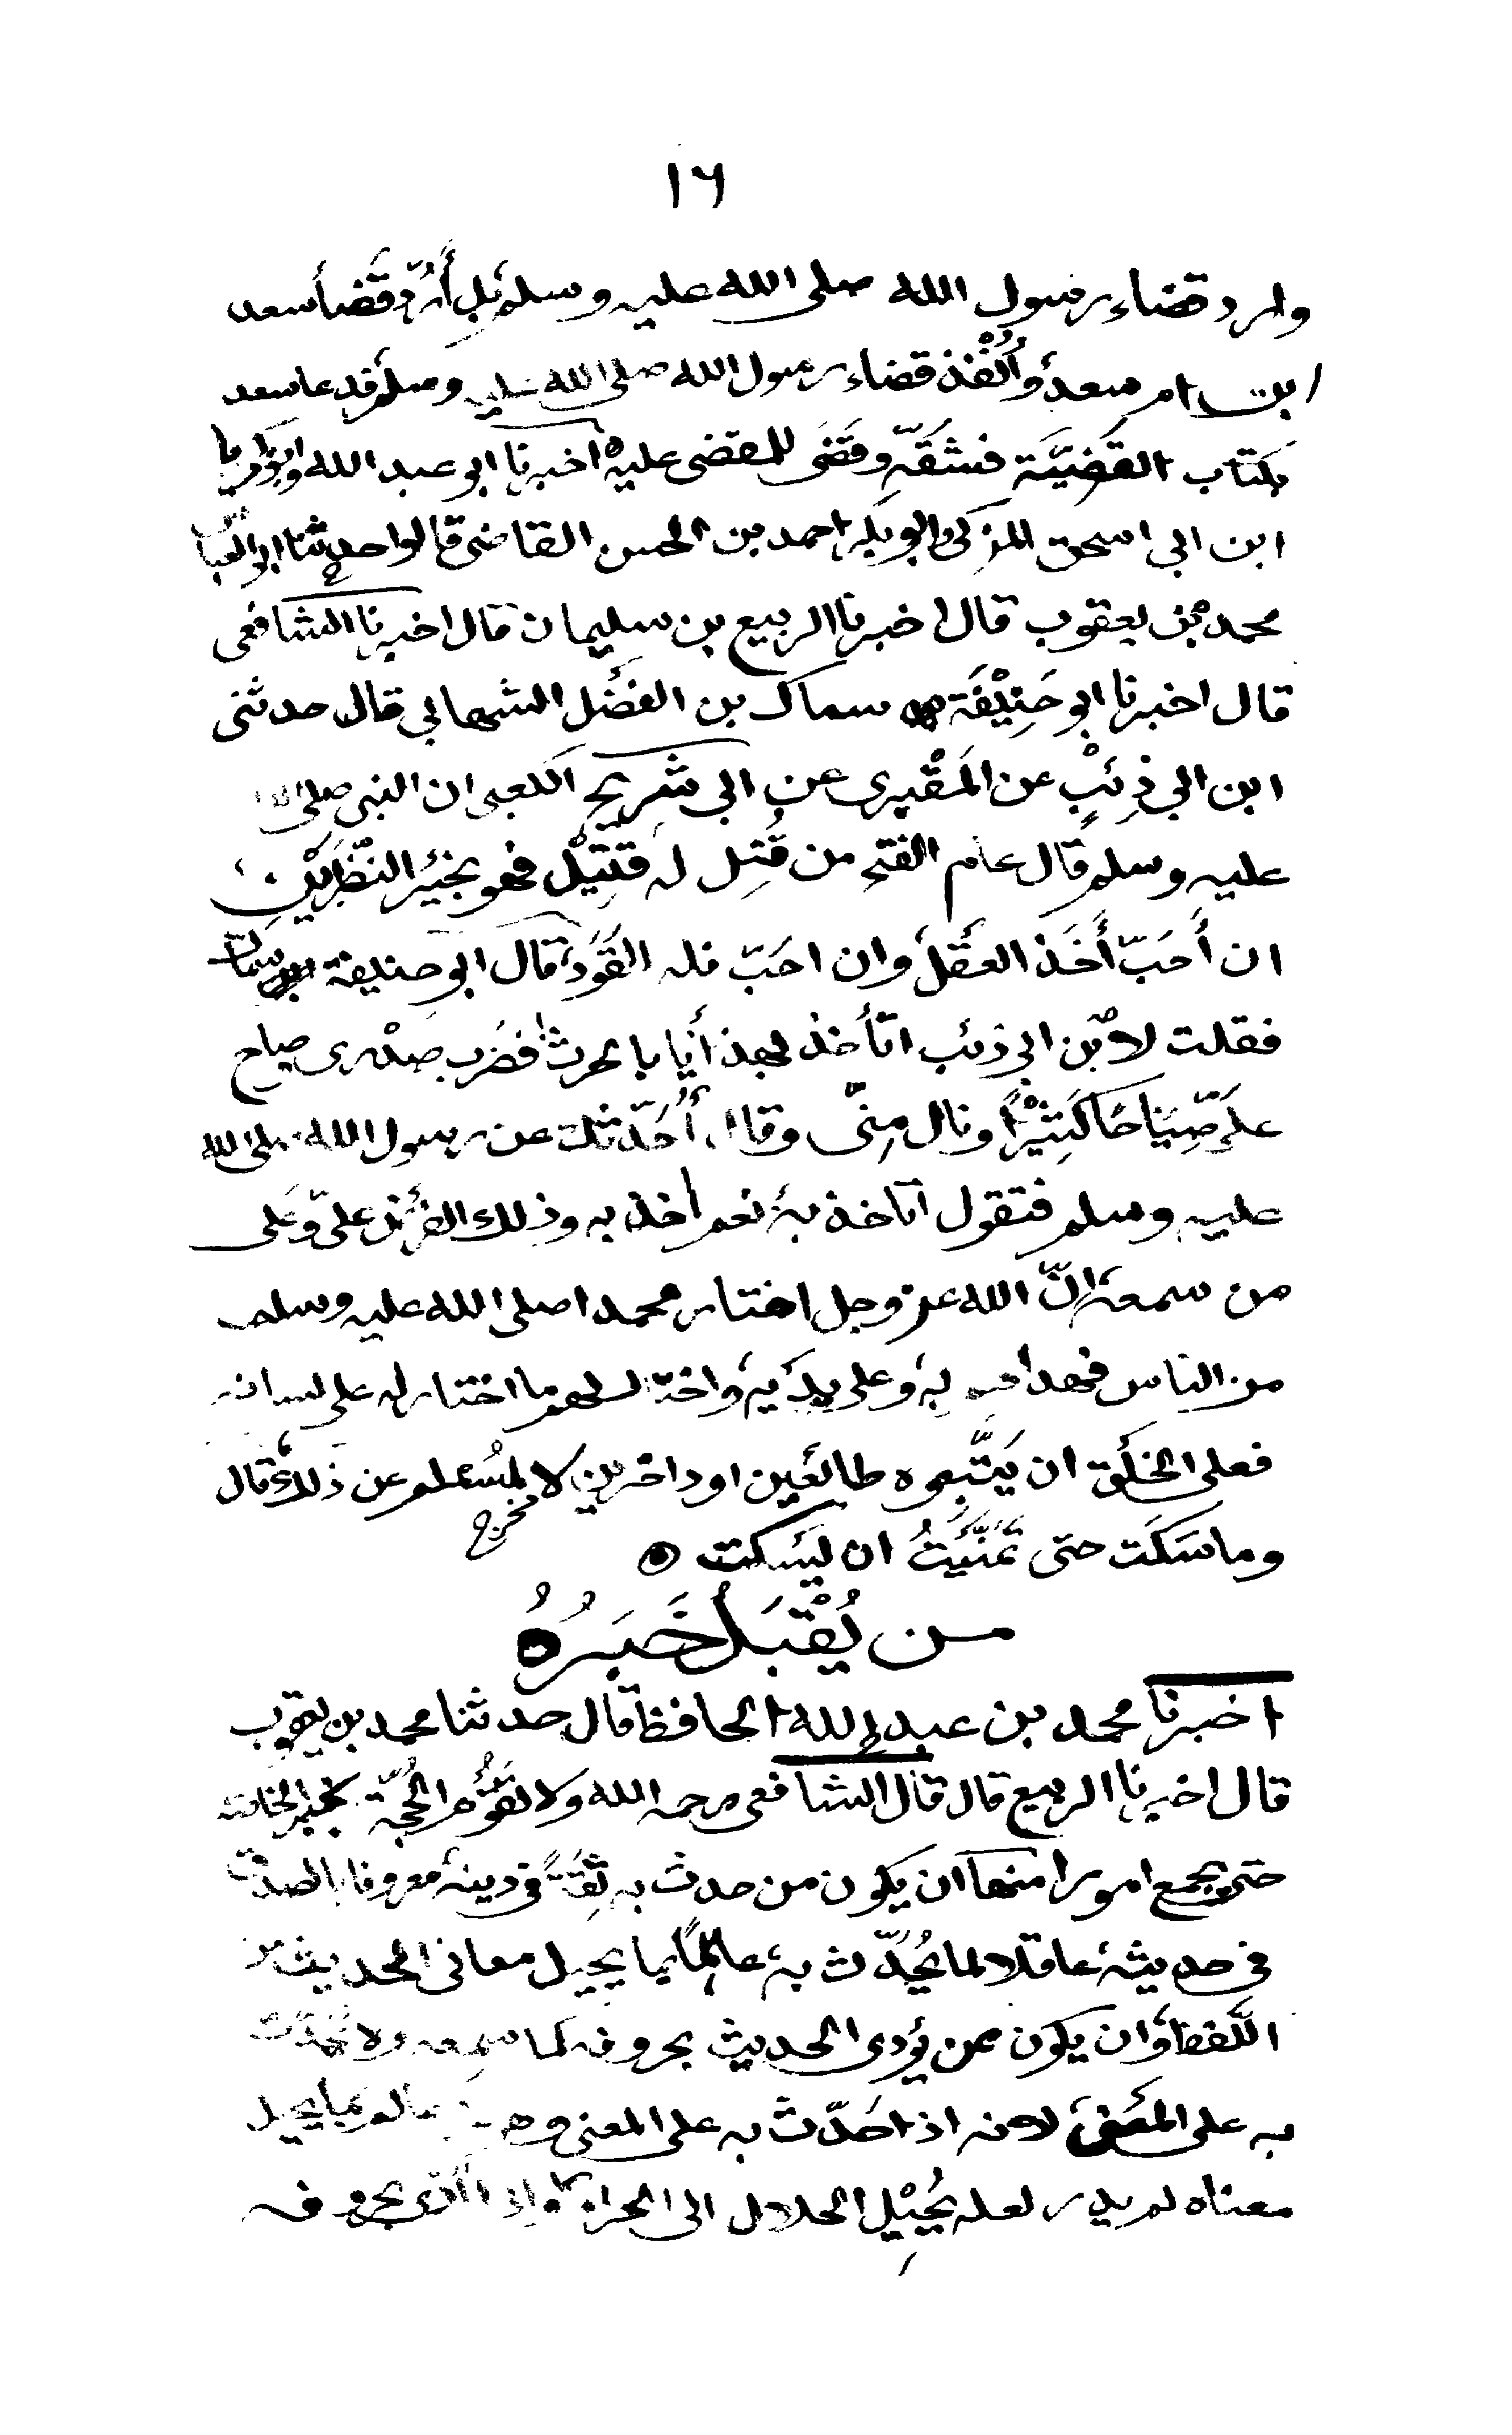 ١٦
وارد قضاء رسول الله صلى الله عليه وسلم بل أرُدّ قَضأ سعد
ابن ام سعد وأُنْفذ قضاء رسول الله صلى الله عليه وسلم فدعا سعد
بكتاب القَضيَّة فشقَّه وقَضَى للمقضى عليه اخبرنا ابو عبد الله وابو زكريا
ابن ابي اسحق المزكى وابو بكر احمد بن الحسن القاضى قالوا حدثنا ابو العبا
محمد بن يعقوب قال اخبرنا الربيع بن سليمان قال اخبرنا الشافعى
قال اخبرنا ابو حَنِيْفَة سماك بن الفضل الشهابي قال حدثنى
ابن ابي ذِئبٍ عن المَقْبرى عن ابي شُريح الكعبى ان النبى صلى الله
عليه وسلم قال عام الفتح من قُتِل له قتيْل فهو بخير النَّظَرَيْن
ان أَحَبّ أَخَذ العَقْل وان احَبّ فله القَوَد قال ابو حنيفة
فقلت لابْن ابي ذئب اتأخذ بهذا يا با الحرث فضَرب صدْرى وصاح
علَىَّ صِيَاحًا كَثِيْرًا ونال مِنّى وقال أُحَدّثك عن رسول الله صلى الله
عليه وسلم فتقول اتاخذ به نعم اخذ به وذلك الفرض علىّ وعَلى
من سمعه انّ الله عز وجل اختار محمدا صلى الله عليه وسلم
من الناس فهداهم به وعلى يدَيه واختار لهم ما اختار له على لسانه
فعلى الخَلْق ان يَتَّبعوه طائعين او داخرين لا لمُسْلم عن ذلك قال
مخرج
وما سَكَت حتى تَمَنَّيْتُ ان يَسكت
مـن يُقْبَلُ خَبَرُهُ
اخبرنا محمد بن عبد الله الحافظ قال حدثنا محمد بن يعقوب
قال اخبرنا الربيع قال قال الشافعى رحمه الله ولا تقُوْم الحُجّة بخبر الخاصة
حتى يجمع امورا منها ان يكون من حدث به ثِقَةً في دينه معروفا بالصدق
فى حديثه عاقلا لما يُحَدّث به عالمًا بما يحيل معانى الحديث من
اللّفظ وان يكون ممن يؤدى الحديث بحروفه كما سمعه ولا يُحَدّث
به على المَعنى لانه اذا حَدّث به على المعنى وهو غير عالم بما يحيل
معناه لم يدر لعله يُحِيْل الحلال الى الحرام واذا ادّى بحروفه